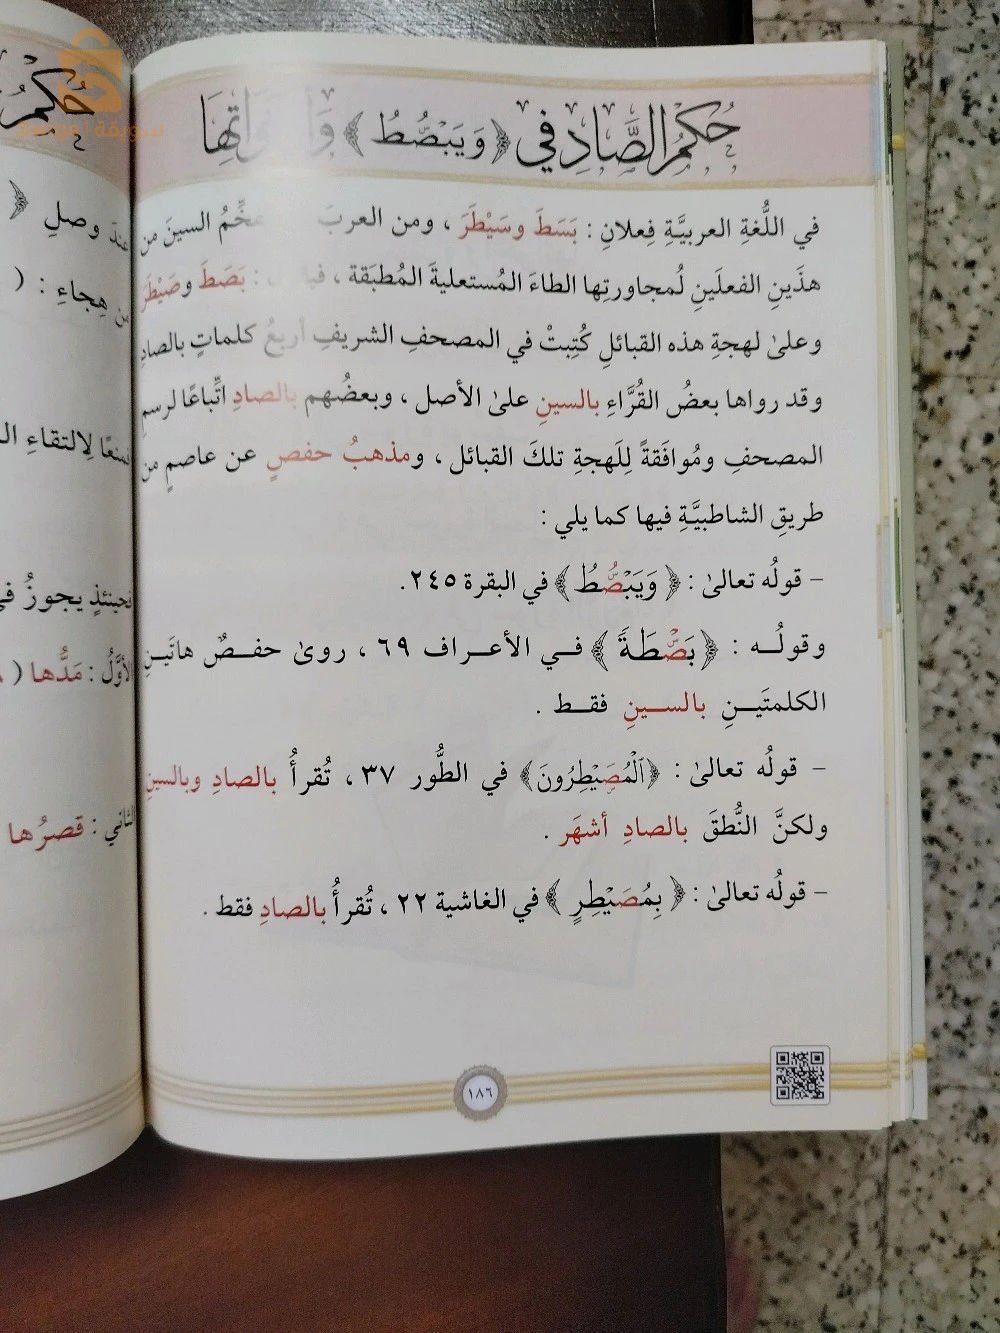 حُكْمُ الصَّادِ فِي ﴿وَيَبْصُۜطُ﴾
في اللُّغةِ العربيَّةِ فِعلانِ : بَسَطَ وسَيْطَرَ ، ومن العربَ السينَ من
هذَينِ الفعلَينِ لُمجاورتِها الطاءَ المُستعليةَ المُطبَقة ، : بَصَطَ وصَيْطَرَ
وعلىٰ لهجةِ هذه القبائلِ كُتِبتْ في المصحفِ الشريفِ أربعُ كلماتٍ بالصادِ
وقد رواها بعضُ القُرَّاءِ بالسينِ علىٰ الأصل ، وبعضُهم بالصادِ اتِّباعًا لرسمِ
المصحفِ ومُوافَقةً لِلَهجةِ تلكَ القبائل ، ومذهبُ حفصٍ عن عاصمٍ من
طريقِ الشاطبيَّةِ فيها كما يلي :
– قولُه تعالىٰ : ﴿ وَيَبْصُۜطُ ﴾ في البقرة ٢٤٥.
وقولُـه : ﴿ بَصْۜطَةً ﴾ فـي الأعـراف ٦٩ ، روىٰ حفـصٌ هاتَيـنِ
الكلمتَيـنِ بالسـينِ فقـط .
– قولُه تعالىٰ : ﴿الْمُصَۣيْطِرُونَ﴾ في الطُّور ٣٧ ، تُقرأُ بالصادِ وبالسينِ
ولكنَّ النُّطقَ بالصادِ أشهَر .
– قولُه تعالىٰ : ﴿ بِمُصَيْطِرٍ ﴾ في الغاشية ٢٢ ، تُقرأُ بالصادِ فقط .
١٨٦
حُكْمُ
عندَ وصلِ ﴿
من هِجاءِ : (
لِالتقاءِ
يجوزُ
الأوَّلُ : مَدُّها (
الثاني : قصرُها
سويقة